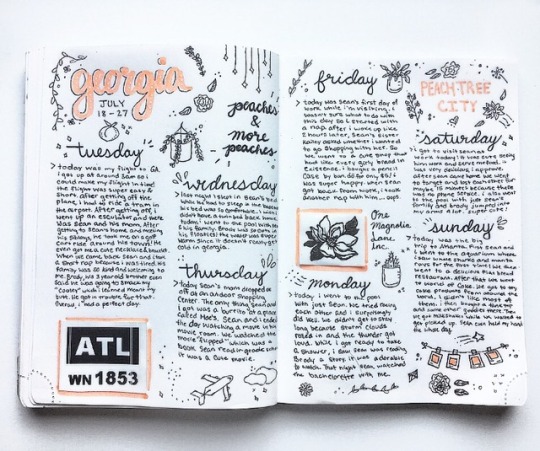 georgia
JULY
18 - 27
peaches
&
more
peaches
tuesday
today was my flight to GA.
I got up at 8 and 5am so I
could make my flight in time!
the flight was super easy &
short. After getting off the
plane, I had to ride a tram in
the airport. After getting off, I
went up an escalator and there
was Sean and his mom. After
getting to Sean's home and meeting
his family, he took me on a golf
cart ride around his town! He
even got me a cute necklace! bound
when we came back. Sean and I took
a short nap because I was tired. His
family was so kind and welcoming to
me. Brady, his 3 year old brother even
said he was going to break my
"cooter" while I showed him my
bite. He got in trouble for that.
Overall, I had a perfect day.
ATL
WN 1853
wednesday
last night I slept in Sean's bed
while he had to sleep in the basement
his bed was so comfortable
today I went to the pool with
his family. Brady was so cute in
his floaties! The water was super
warm since it doesn't really get
cold in georgia.
thursday
today Sean's mom dropped us
off at an outdoor Shopping
Center. The only thing Sean and
I got was a burrito at a place
called Moe's. Sean and I ended
the day watching a movie in his
movie room. We watched the
movie "flipped" which was a
book Sean read in grade school
it was a cute movie.
friday
today was Sean's first day of
work while I'm visiting. I
wasn't sure what to do with
this day so I started with
a nap after I woke up like
2 hours later, Sean's sister
Kailey asked whether I wanted
to go shopping with her. So
we went to a cute shop that
had like every girly brand in
existence. I bought a pencil
case by ban.do for only $8! I
was super happy. When Sean
got back home, I took
another nap with him... oops.
One
Magnolia
Lane,
Inc.
monday
today I went to the pool
with just Sean. We tried racing
each other and I surprisingly
did well. We didn't get to stay
long because storm clouds
rolled in and the thunder got
loud. While I got ready to take
a shower, I saw Sean was reading
Brady a story. It was adorable
to watch. That night Sean watched
the bachelorette with me.
PEACH-TREE
CITY
saturday
I got to visit Sean at
work today! It was cute seeing
him work and serve food. It
was very delicious, I approve.
After Sean came home we went
to target and lost each other for
maybe 15 minutes because there
was no phone service. I also went
to the pool with just Sean's
family and Brady jumped into
my arms a lot. super cute!
sunday
today was the big
trip to Atlanta. First Sean and
I went to the aquarium where
I saw whale sharks and manta
rays for the first time! We then
went to a delicious fish bread
restaurant. After that we went
to world of Coke. We got to try
coke products from around the
world. I didn't like most of
them. I then bought a Coke top
and some other goodies there. Sean
got milkshake while we waited to
get picked up. Sean held my hand
the whole day.